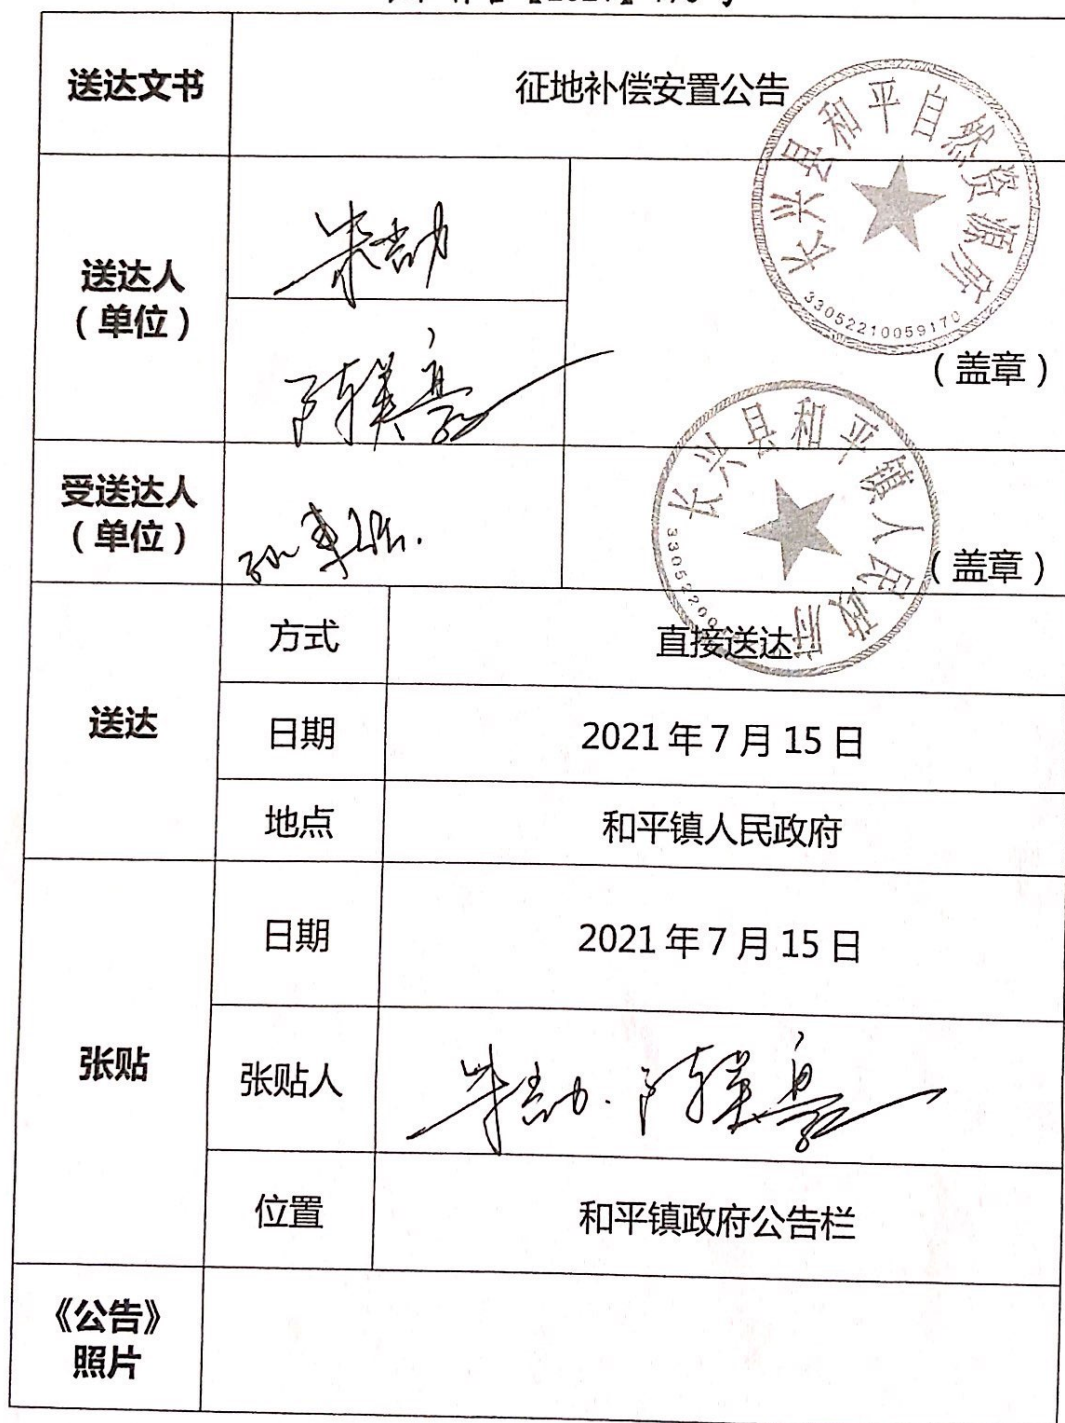 送达文书
征地补偿安置公告
长兴县和平自然资源所
33052210059170
送达人
（单位）
（盖章）
长兴县和平镇人民政府
受送达人
（单位）
（盖章）
送达
方式
直接送达
日期
2021年7月15日
地点
和平镇人民政府
张贴
日期
2021年7月15日
张贴人
位置
和平镇政府公告栏
《公告》
照片